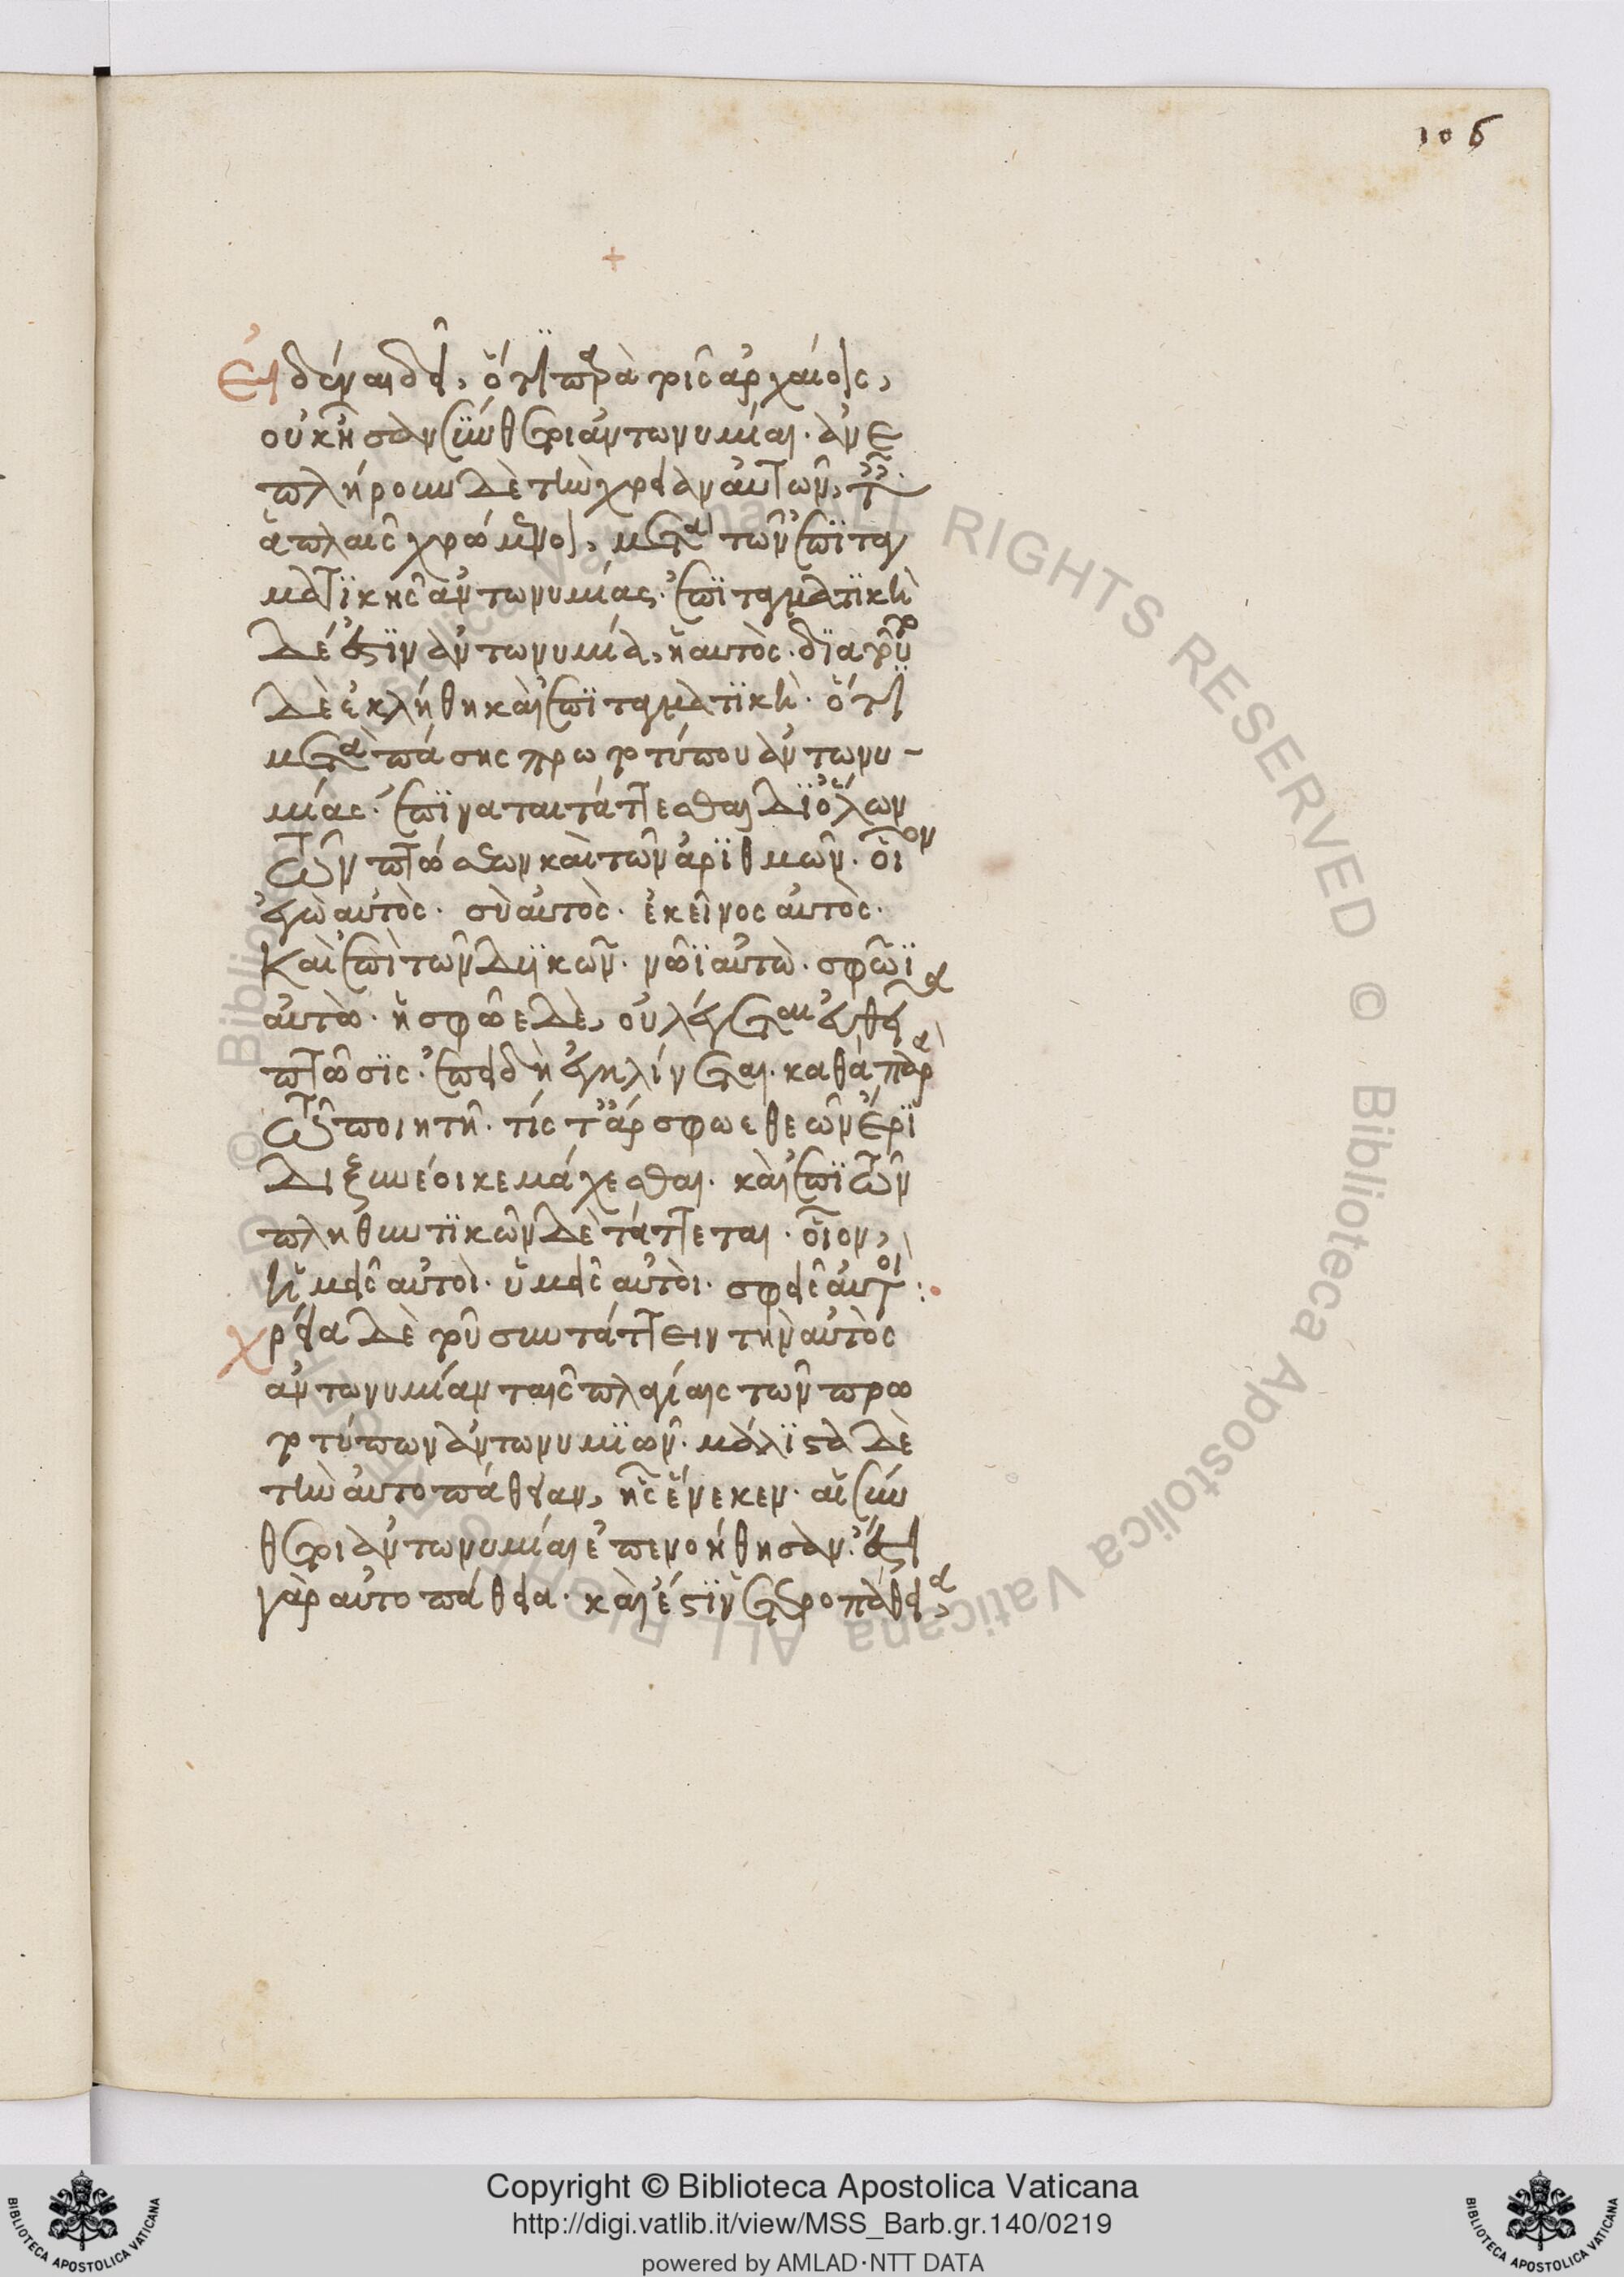 106
+
Εἰδέναι δεῖ, ὅτι παρὰ τοῖς ἀρχαίοις,
οὐκ ἦσαν σύνθετοι ἀντωνυμίαι. ἀνε
πλήρουν δὲ τὴν χρείαν αὐτῶν, ταῖς
ἁπλαῖς χρώμενοι, μετὰ τῶν ἐπιταγ
ματικῆς ἀντωνυμίας. ἐπιταγματικὴ
δέ ἐστιν ἀντωνυμία, ἡ αὐτὸς. διὰ τοῦτο
δὲ ἐκλήθη καὶ ἐπιταγματικὴ. ὅτι
μετὰ πάσης πρωτοτύπου ἀντωνυ-
μίας. ἐπίσταται τάττεσθαι δι' ὅλων
τῶν πτώσεων καὶ τῶν ἀριθμῶν. οἷον
ἐγὼ αὐτὸς. σὺ αὐτὸς. ἐκεῖνος αὐτὸς.
Καὶ ἐπὶ τῶν δυϊκῶν. νῶϊ αὐτὼ. σφῶϊ
αὐτὼ. ἡ σφῶε δὲ, οὐ λέγεται εὐθεῖα
πτῶσις. ἐπειδὴ ἐγκλίνεται. καθὰ παρὰ
τῶ ποιητῆ. τίς τ' ἄρ σφωε θεῶν ἔριϊ
δι ξυνέοικε μάχεσθαι. καὶ ἐπὶ τῶν
πληθυντικῶν δὲ τάττεται. οἷον,
ἡμεῖς αὐτοὶ. ὑμεῖς αὐτοὶ. σφεῖς αὐτοὶ :
Χρεία δὲ τοῦ συντάττειν τὴν αὐτὸς
ἀντωνυμίαν ταῖς πλαγίαις τῶν πρω
τοτύπων ἀντωνυμιῶν. μάλιστα δὲ
τὴν αὐτοπάθειαν, ἧς ἕνεκεν. αἱ σύν
θετοι ἀντωνυμίαι ἐπενοήθησαν. ἔστι
γὰρ αὐτοπάθεια. καὶ ἔστιν ἑτεροπάθεια,
Copyright © Biblioteca Apostolica Vaticana
http://digi.vatlib.it/view/MSS_Barb.gr.140/0219
powered by AMLAD·NTT DATA
BIBLIOTECA APOSTOLICA VATICANA
BIBLIOTECA APOSTOLICA VATICANA